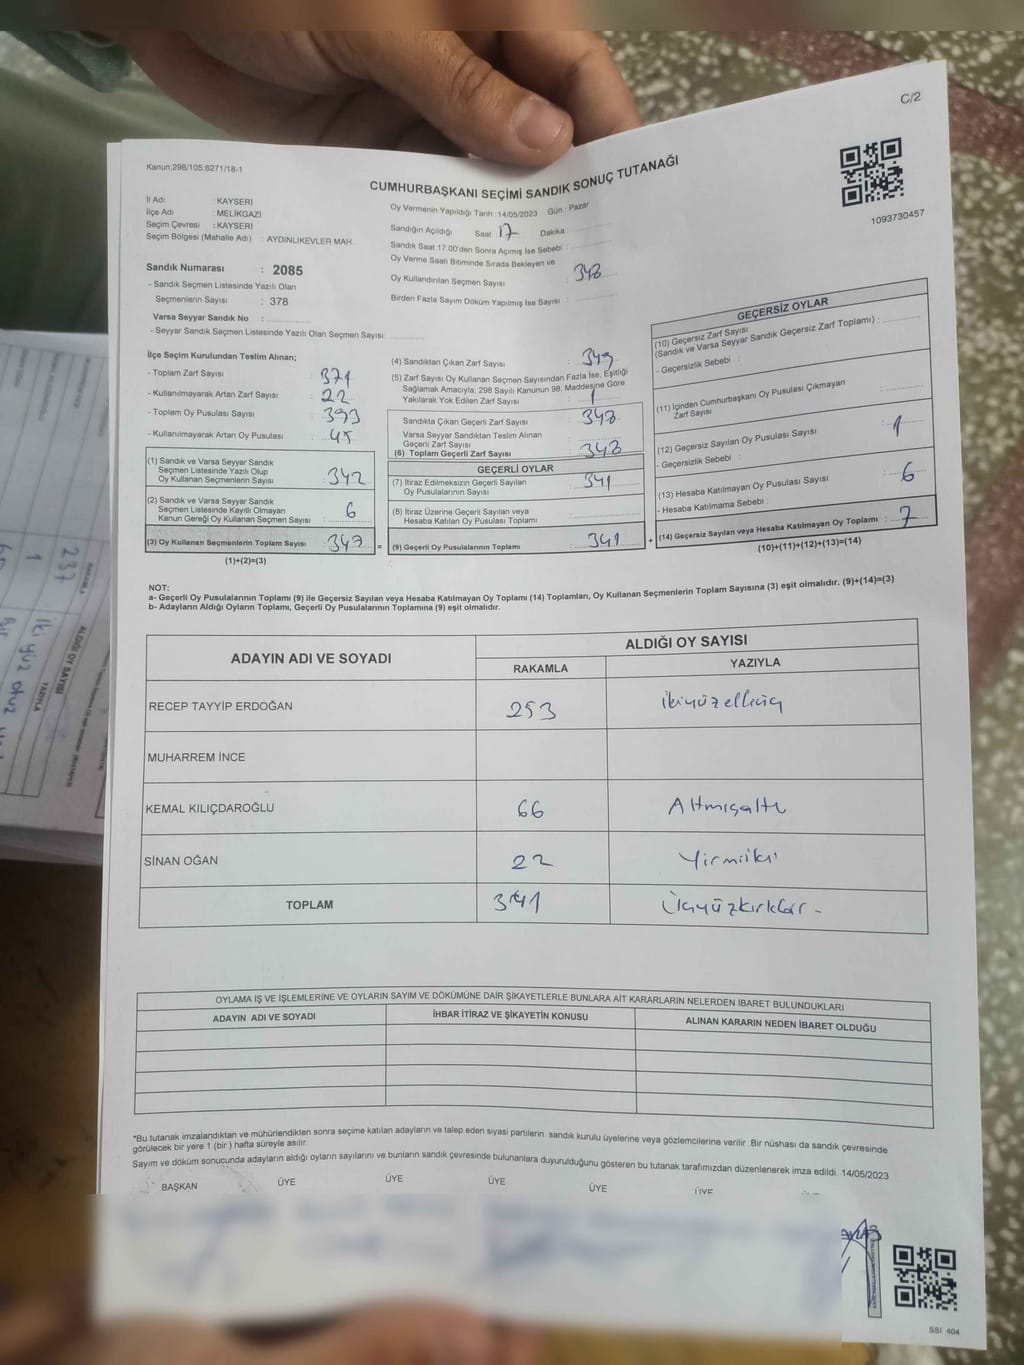 C/2
Kanun:298/105;6271/18-1
CUMHURBAŞKANI SEÇİMİ SANDIK SONUÇ TUTANAĞI
1093730457
İl Adı : KAYSERİ
İlçe Adı : MELİKGAZİ
Seçim Çevresi : KAYSERİ
Seçim Bölgesi (Mahalle Adı) : AYDINLIKEVLER MAH.
Sandık Numarası : 2085
- Sandık Seçmen Listesinde Yazılı Olan
Seçmenlerin Sayısı : 378
Varsa Seyyar Sandık No :
- Seyyar Sandık Seçmen Listesinde Yazılı Olan Seçmen Sayısı
Oy Vermenin Yapıldığı Tarih : 14/05/2023 Gün : Pazar
Sandığın Açıldığı Saat 17 Dakika
Sandık Saat 17.00'den Sonra Açımış İse Sebebi :
Oy Verme Saati Bitiminde Sırada Bekleyen ve
Oy Kullandırılan Seçmen Sayısı : 348
Birden Fazla Sayım Döküm Yapılmış İse Sayısı :
İlçe Seçim Kurulundan Teslim Alınan;
- Toplam Zarf Sayısı 371
- Kullanılmayarak Artan Zarf Sayısı : 22
- Toplam Oy Pusulası Sayısı : 393
- Kullanılmayarak Artan Oy Pusulası : 45
(1) Sandık ve Varsa Seyyar Sandık
Seçmen Listesinde Yazılı Olup
Oy Kullanan Seçmenlerin Sayısı : 342
(2) Sandık ve Varsa Seyyar Sandık
Seçmen Listesinde Kayıtlı Olmayan
Kanun Gereği Oy Kullanan Seçmen Sayısı : 6
(3) Oy Kullanan Seçmenlerin Toplam Sayısı : 347 =
(1)+(2)=(3)
(4) Sandıktan Çıkan Zarf Sayısı : 349
(5) Zarf Sayısı Oy Kullanan Seçmen Sayısından Fazla İse, Eşitliği
Sağlamak Amacıyla, 298 Sayılı Kanunun 98. Maddesine Göre
Yakılarak Yok Edilen Zarf Sayısı : 1
Sandıkta Çıkan Geçerli Zarf Sayısı : 348
Varsa Seyyar Sandıktan Teslim Alınan
Geçerli Zarf Sayısı
(6) Toplam Geçerli Zarf Sayısı : 348
GEÇERLİ OYLAR
(7) İtiraz Edilmeksizin Geçerli Sayılan
Oy Pusulalarının Sayısı : 341
(8) İtiraz Üzerine Geçerli Sayılan veya
Hesaba Katılan Oy Pusulası Toplamı :
(9) Geçerli Oy Pusulalarının Toplamı : 341 +
GEÇERSİZ OYLAR
(10) Geçersiz Zarf Sayısı
(Sandık ve Varsa Seyyar Sandık Geçersiz Zarf Toplamı) :
- Geçersizlik Sebebi :
(11) İçinden Cumhurbaşkanı Oy Pusulası Çıkmayan
Zarf Sayısı :
(12) Geçersiz Sayılan Oy Pusulası Sayısı : 1
- Geçersizlik Sebebi :
(13) Hesaba Katılmayan Oy Pusulası Sayısı : 6
- Hesaba Katılmama Sebebi :
(14) Geçersiz Sayılan veya Hesaba Katılmayan Oy Toplamı : 7
(10)+(11)+(12)+(13)=(14)
NOT:
a- Geçerli Oy Pusulalarının Toplamı (9) ile Geçersiz Sayılan veya Hesaba Katılmayan Oy Toplamı (14) Toplamları, Oy Kullanan Seçmenlerin Toplam Sayısına (3) eşit olmalıdır. (9)+(14)=(3)
b- Adayların Aldığı Oyların Toplamı, Geçerli Oy Pusulalarının Toplamına (9) eşit olmalıdır.
ADAYIN ADI VE SOYADI
ALDIĞI OY SAYISI
RAKAMLA YAZIYLA
RECEP TAYYİP ERDOĞAN 253 ikiyüzelliüç
MUHARREM İNCE
KEMAL KILIÇDAROĞLU 66 Altmışaltı
SİNAN OĞAN 22 Yirmiiki
TOPLAM 341 Üçyüzkırkbir -
OYLAMA İŞ VE İŞLEMLERİNE VE OYLARIN SAYIM VE DÖKÜMÜNE DAİR ŞİKAYETLERLE BUNLARA AİT KARARLARIN NELERDEN İBARET BULUNDUKLARI
ADAYIN ADI VE SOYADI İHBAR İTİRAZ VE ŞİKAYETİN KONUSU ALINAN KARARIN NEDEN İBARET OLDUĞU
*Bu tutanak imzalandıktan ve mühürlendikten sonra seçime katılan adayların ve talep eden siyasi partilerin sandık kurulu üyelerine veya gözlemcilerine verilir .Bir nüshası da sandık çevresinde
görülecek bir yere 1 (bir ) hafta süreyle asılır.
Sayım ve döküm sonucunda adayların aldığı oyların sayılarını ve bunların sandık çevresinde bulunanlara duyurulduğunu gösteren bu tutanak tarafımızdan düzenlenerek imza edildi. 14/05/2023
BAŞKAN ÜYE ÜYE ÜYE ÜYE ÜYE
SSİ 404